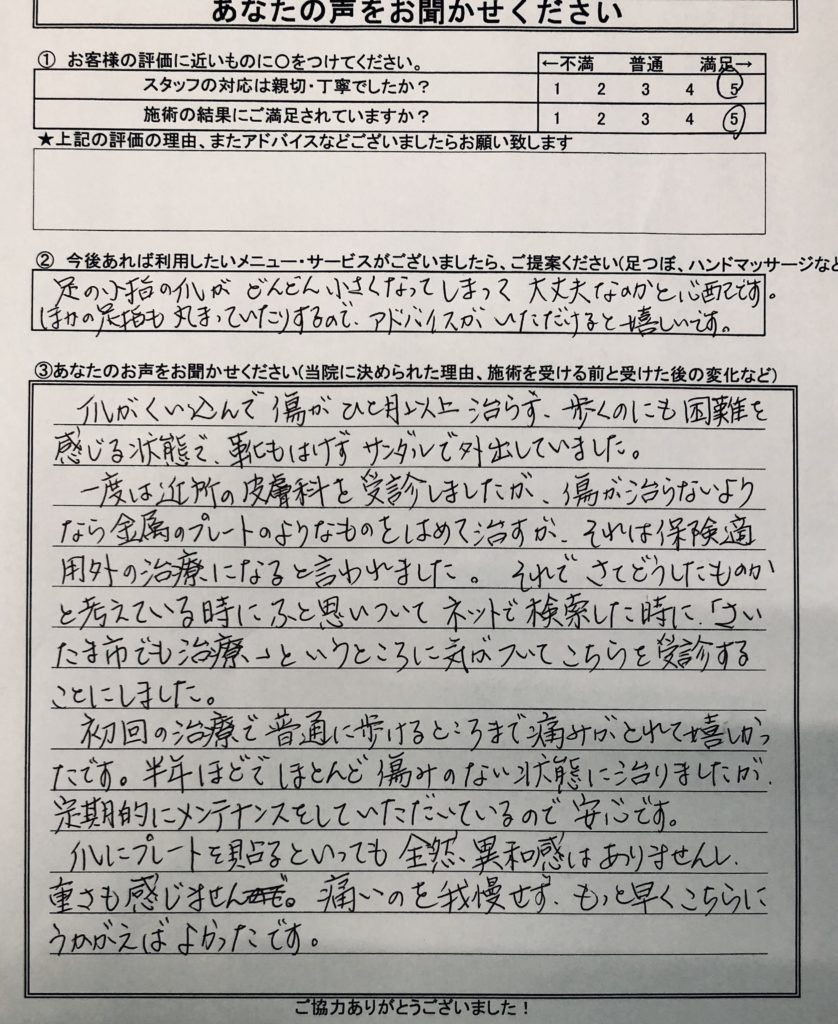 あなたの声をお聞かせください
① お客様の評価に近いものに○をつけてください。 ←不満 普通 満足→
スタッフの対応は親切・丁寧でしたか？ 1 2 3 4 5
施術の結果にご満足されていますか？ 1 2 3 4 5
★上記の評価の理由、またアドバイスなどございましたらお願い致します
② 今後あれば利用したいメニュー・サービスがございましたら、ご提案ください(足つぼ、ハンドマッサージなど
足の小指の爪が どんどん小さくなってしまって 大丈夫なのかと心配です。
ほかの足指も 丸まっていたりするので、アドバイスが いただけると嬉しいです。
③あなたのお声をお聞かせください(当院に決められた理由、施術を受ける前と受けた後の変化など)
爪がくい込んで 傷が ひと月以上 治らず、歩くのにも困難を
感じる状態で、靴もはけず サンダルで外出していました。
一度は近所の皮膚科を受診しましたが、傷が治らないより
なら金属のプレートのようなものをはめて治すが、それは保険適
用外の治療になると言われました。それで さてどうしたものか
と考えている時にふと思いついて ネットで検索した時に、「さい
たま市でも治療」というところに気がついてこちらを受診する
ことにしました。
初回の治療で普通に歩けるところまで痛みがとれて嬉しかっ
たです。半年ほどでほとんど傷みのない状態に治りましたが、
定期的にメンテナンスをしていただいているので 安心です。
爪にプレートを貼るといっても 全然、異和感はありませんし、
重さも感じません。痛いのを我慢せず、もっと早くこちらに
うかがえばよかったです。
ご協力ありがとうございました！